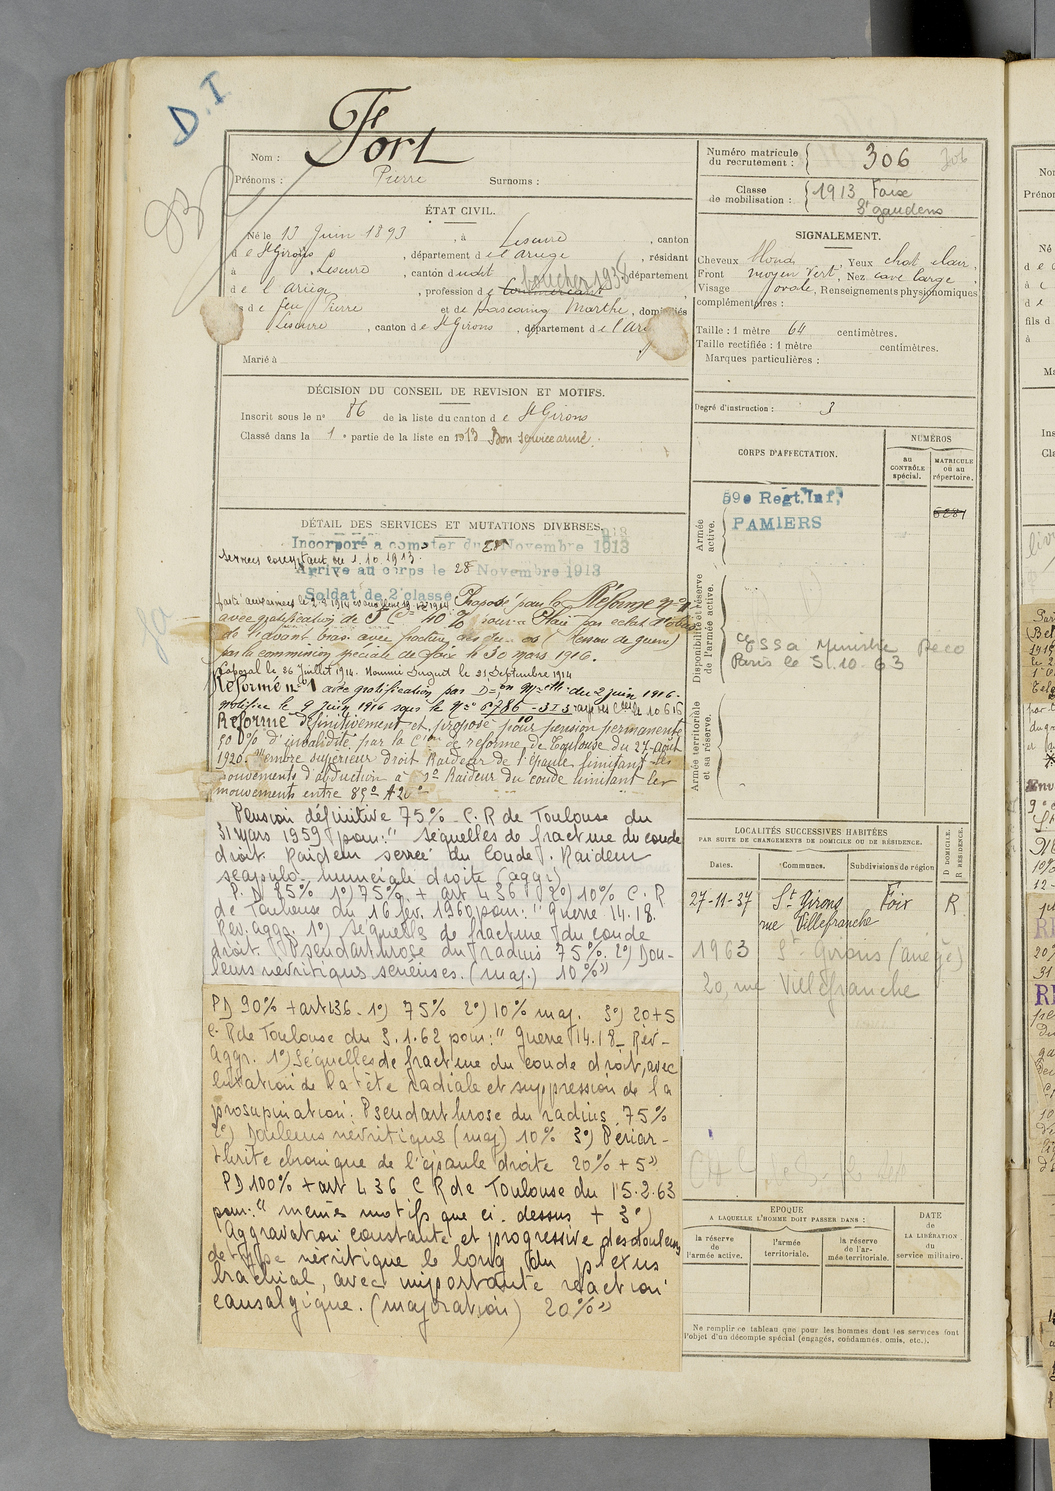 D.I
Nom : Fort
Prénoms : Pierre Surnoms :
ÉTAT CIVIL.
Né le 13 Juin 1893, à Lescure, canton
de St Girons, département de l'ariège, résidant
à Lescure, canton dudit, département
de l'ariège, profession de commerçant boucher 1938
de feu Pierre et de Marthe, domiciliés
Lescure, canton de St Girons, département de l'Ari
Marié à
DÉCISION DU CONSEIL DE REVISION ET MOTIFS.
Inscrit sous le no 86 de la liste du canton de St Girons
Classé dans la 1e partie de la liste en 1913 Bon service armé.
DÉTAIL DES SERVICES ET MUTATIONS DIVERSES.
Incorporé à compter du 28 Novembre 1913
Services comptant du 1.10.1913.
Arrivé au corps le 28 Novembre 1913
Soldat de 2e classe
Proposé pour la Réforme no 1
avec gratification de 40 % pour Plaie par éclat d'obus
de l'avant bras avec fracture des deux os (Blessure de guerre)
par la commission spéciale de Foix le 30 mars 1916.
Caporal le 26 Juillet 1914. Nommé Sergent le 21 Septembre 1914
Réformé no 1 avec gratification par Don Mlle du 2 juin 1916.
notifiée le 9 Juin 1916 sous le No 6786
Réformé définitivement et proposé pour pension permanente
50 % d'invalidité par la Con de réforme de Toulouse du 27 Août
1920. Membre supérieur droit Raideur de l'épaule limitant les
mouvements d'abduction à Raideur du coude limitant les
mouvements entre 85° et 20°
Pension définitive 75% C.R de Toulouse du
31 mars 1959 pour: " séquelles de fracture du coude
droit. Raideur serrée du Coude. Raideur
scapulo-humérale droite (aggr)
P.D 85% 1°) 75% + art 436 2°) 10% C.R
de Toulouse du 16 fév. 1960 pour: " Guerre 14.18.
Rév. aggr. 1°) Séquelles de fracture du coude
droit. Pseudarthrose du radius 75%. 2°) Dou-
leurs névritiques sérieuses. (maj.) 10%"
PD 90% + art 436. 1°) 75% 2°) 10% maj. 3°) 20+5
C. R de Toulouse du 3.1.62 pour: " Guerre 14.18_ Rév-
Aggr. 1°) Séquelles de fracture du coude droit, avec
luxation de la tête radiale et suppression de la
prosupination. Pseudarthrose du radius. 75%
2°) Douleurs névritiques (maj) 10% 3°) Périar-
thrite chronique de l'épaule droite 20% + 5"
PD 100% + art 436 C R de Toulouse du 15.2.63
pour: " mêmes motifs que ci-dessus + 3°)
Aggravation constante et progressive des douleurs
de type névritique le long du plexus
brachial, avec importante réaction
causalgique. (majoration) 20%"
Numéro matricule du recrutement : 306 306
Classe de mobilisation : 1913 Foix
St gaudens
SIGNALEMENT.
Cheveux Blond, Yeux chat. clair,
Front moyen Vert, Nez cave large,
Visage ovale, Renseignements physionomiques
complémentaires :
Taille : 1 mètre 64 centimètres.
Taille rectifiée : 1 mètre centimètres.
Marques particulières :
Degré d'instruction : 3
CORPS D'AFFECTATION.
NUMÉROS
au CONTRÔLE spécial.
MATRICULE ou au répertoire.
Armée active.
59e Regt. Inf.
PAMIERS
Disponibilité et réserve de l'armée active.
Ministre
Paris le 31.10.63
Armée territoriale et sa réserve.
LOCALITÉS SUCCESSIVES HABITÉES
PAR SUITE DE CHANGEMENTS DE DOMICILE OU DE RÉSIDENCE.
Dates. Communes. Subdivisions de région D DOMICILE. R RÉSIDENCE.
27-11-37 St Girons Foix R
rue Villefranche
1963 St Girons (ariège)
20, rue Villefranche
EPOQUE
A LAQUELLE L'HOMME DOIT PASSER DANS :
la réserve de l'armée active.
l'armée territoriale.
la réserve de l'armée territoriale.
DATE de LA LIBÉRATION du service militaire.
Ne remplir ce tableau que pour les hommes dont les services font
l'objet d'un décompte spécial (engagés, condamnés, omis, etc.).